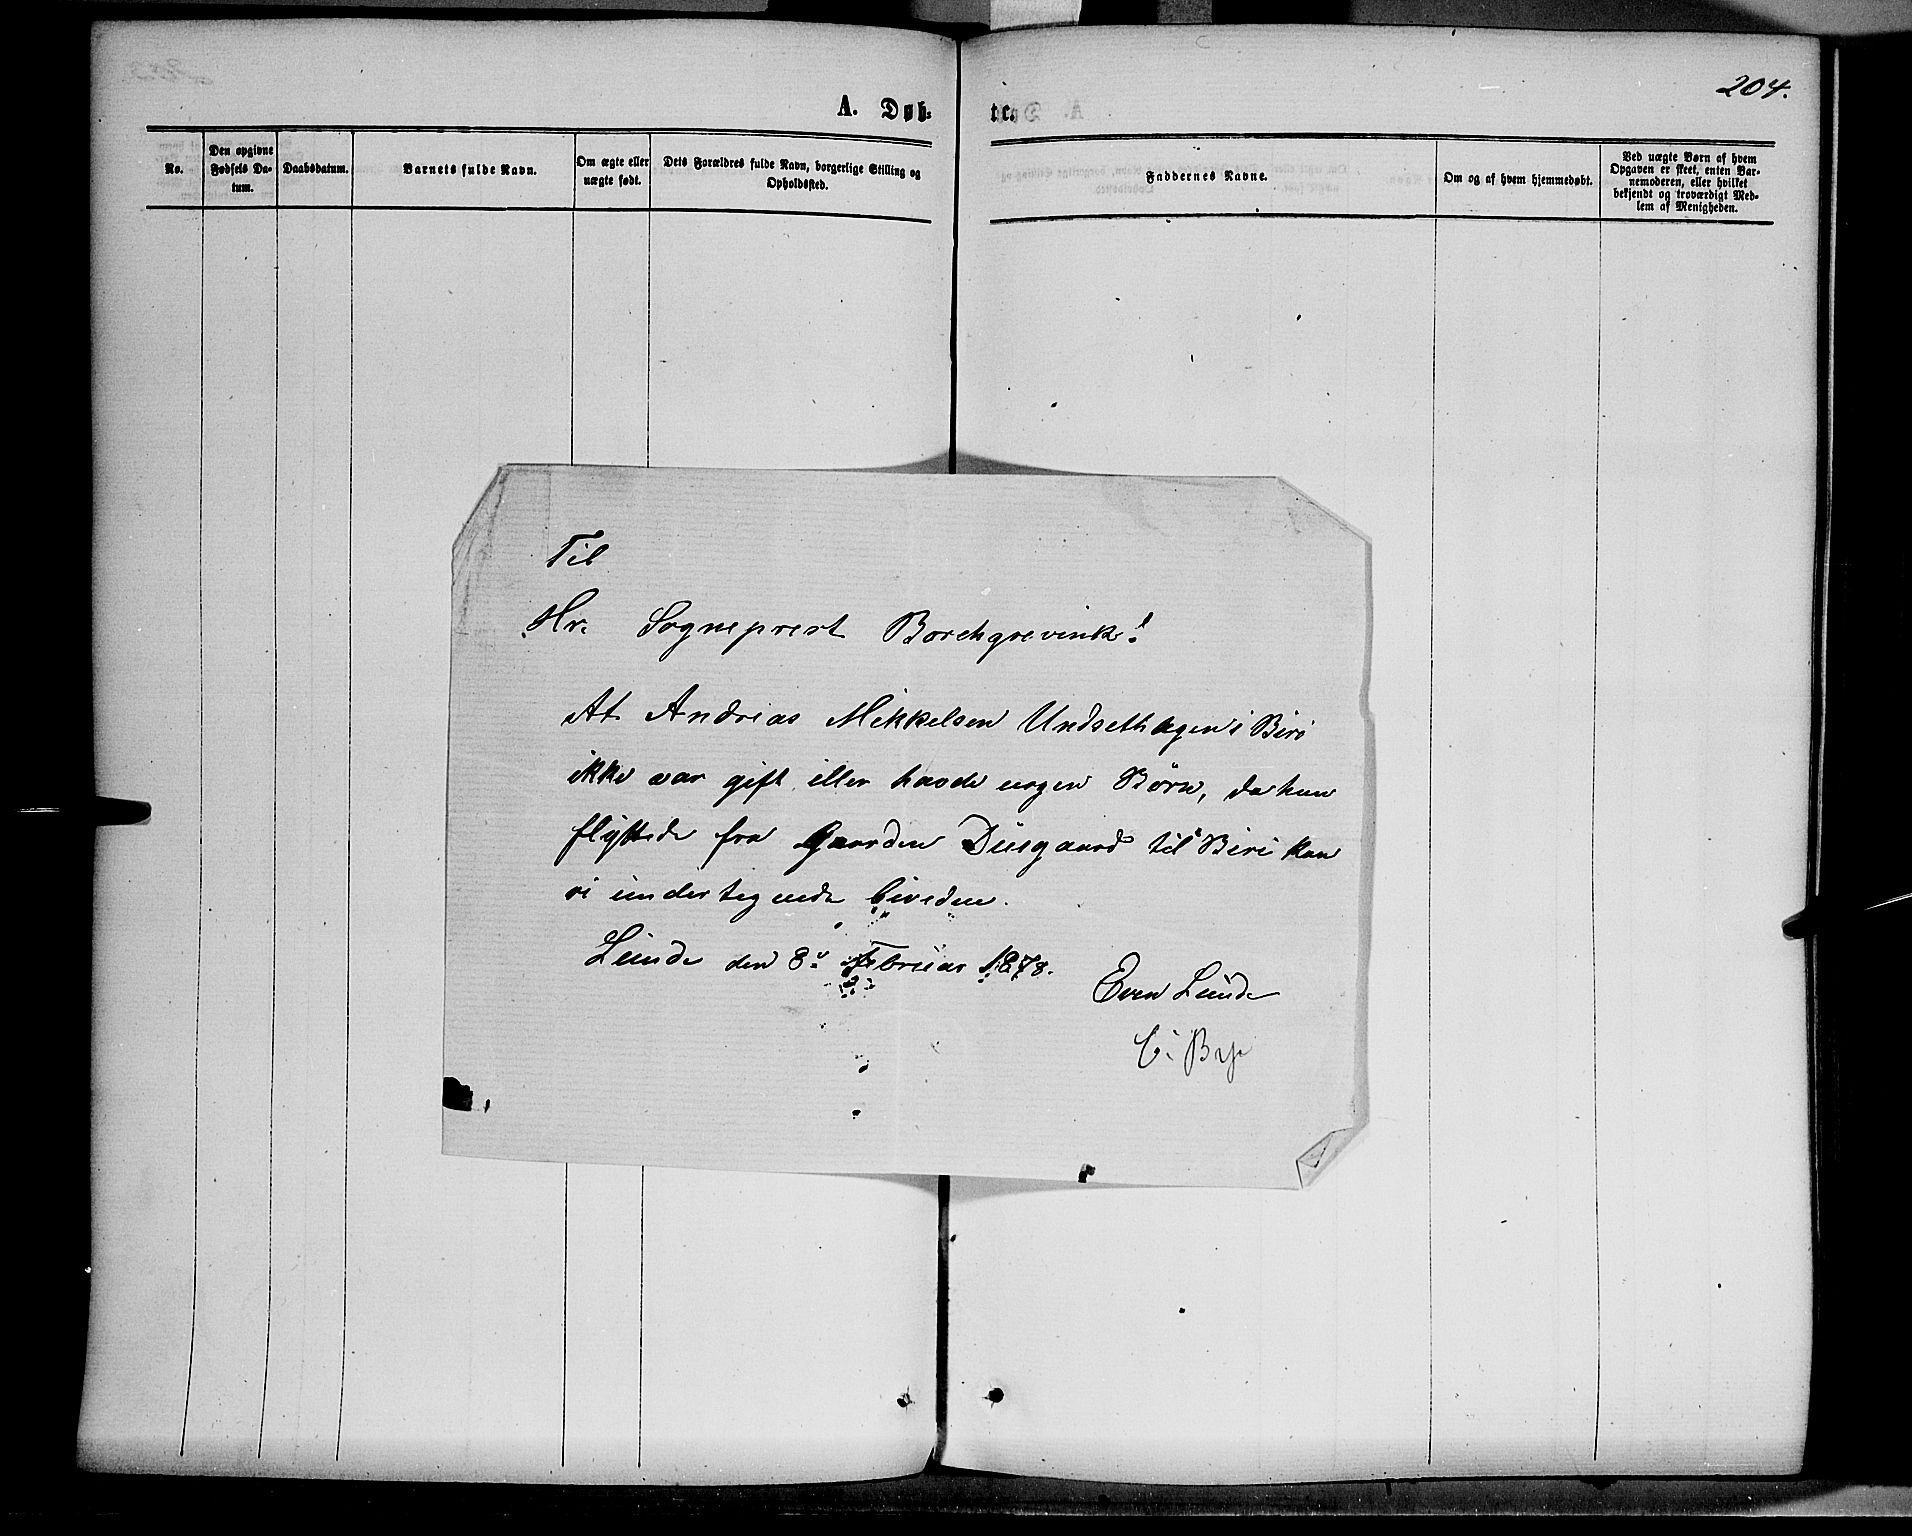 204.
A. Døb-
te.
No.
Den opgivne
Fødsels Da-
tum.
Daabsdatum.
Barnets fulde Navn.
Om ægte eller
uægte født.
Dets Forældres fulde Navn, borgerlige Stilling og
Opholdssted.
Faddernes Navne.
Om og af hvem hjemmedøbt.
Ved uægte Børn af hvem
Opgaven er skeet, enten Bar-
nemoderen, eller hvilket
bekjendt og troværdigt Med-
lem af Menigheden.
Til
Hr. Sogneprest Borchgrevink!
At Andrias Mikkelsen Undsethagen i Biri
ikke var gift eller havde nogen Børn, da han
flyttede fra Gaarden Diesgaard til Biri kan
vi undertegnede bividne.
Lunde den 8de Februar 1878.
Even Lunde
C. Bye